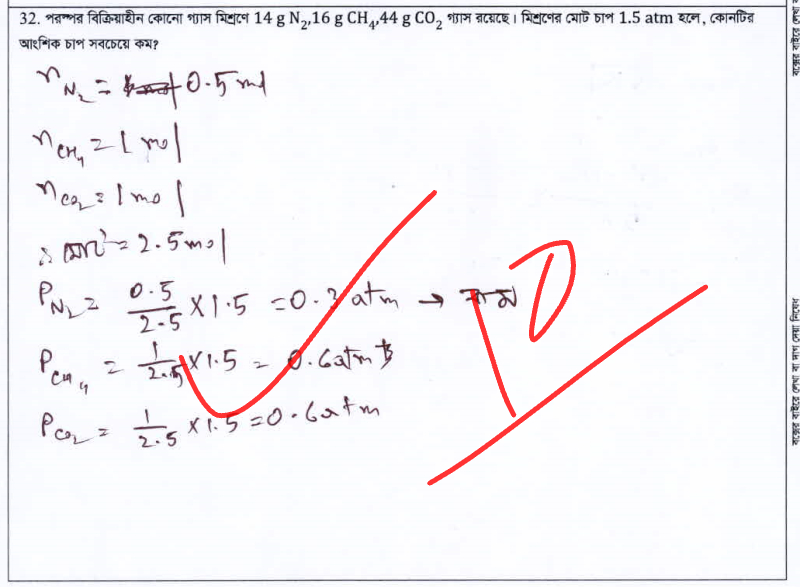 32. পরস্পর বিক্রিয়াহীন কোনো গ্যাস মিশ্রণে 14 g N₂,16 g CH₄,44 g CO₂ গ্যাস রয়েছে। মিশ্রণের মোট চাপ 1.5 atm হলে, কোনটির
আংশিক চাপ সবচেয়ে কম?
n_N₂ = 0.5 mol
n_CH₄ = 1 mol
n_CO₂ = 1 mol
∴ মোট = 2.5 mol
P_N₂ = 0.5/2.5 × 1.5 = 0.3 atm → কম
P_CH₄ = 1/2.5 × 1.5 = 0.6 atm
P_CO₂ = 1/2.5 × 1.5 = 0.6 atm